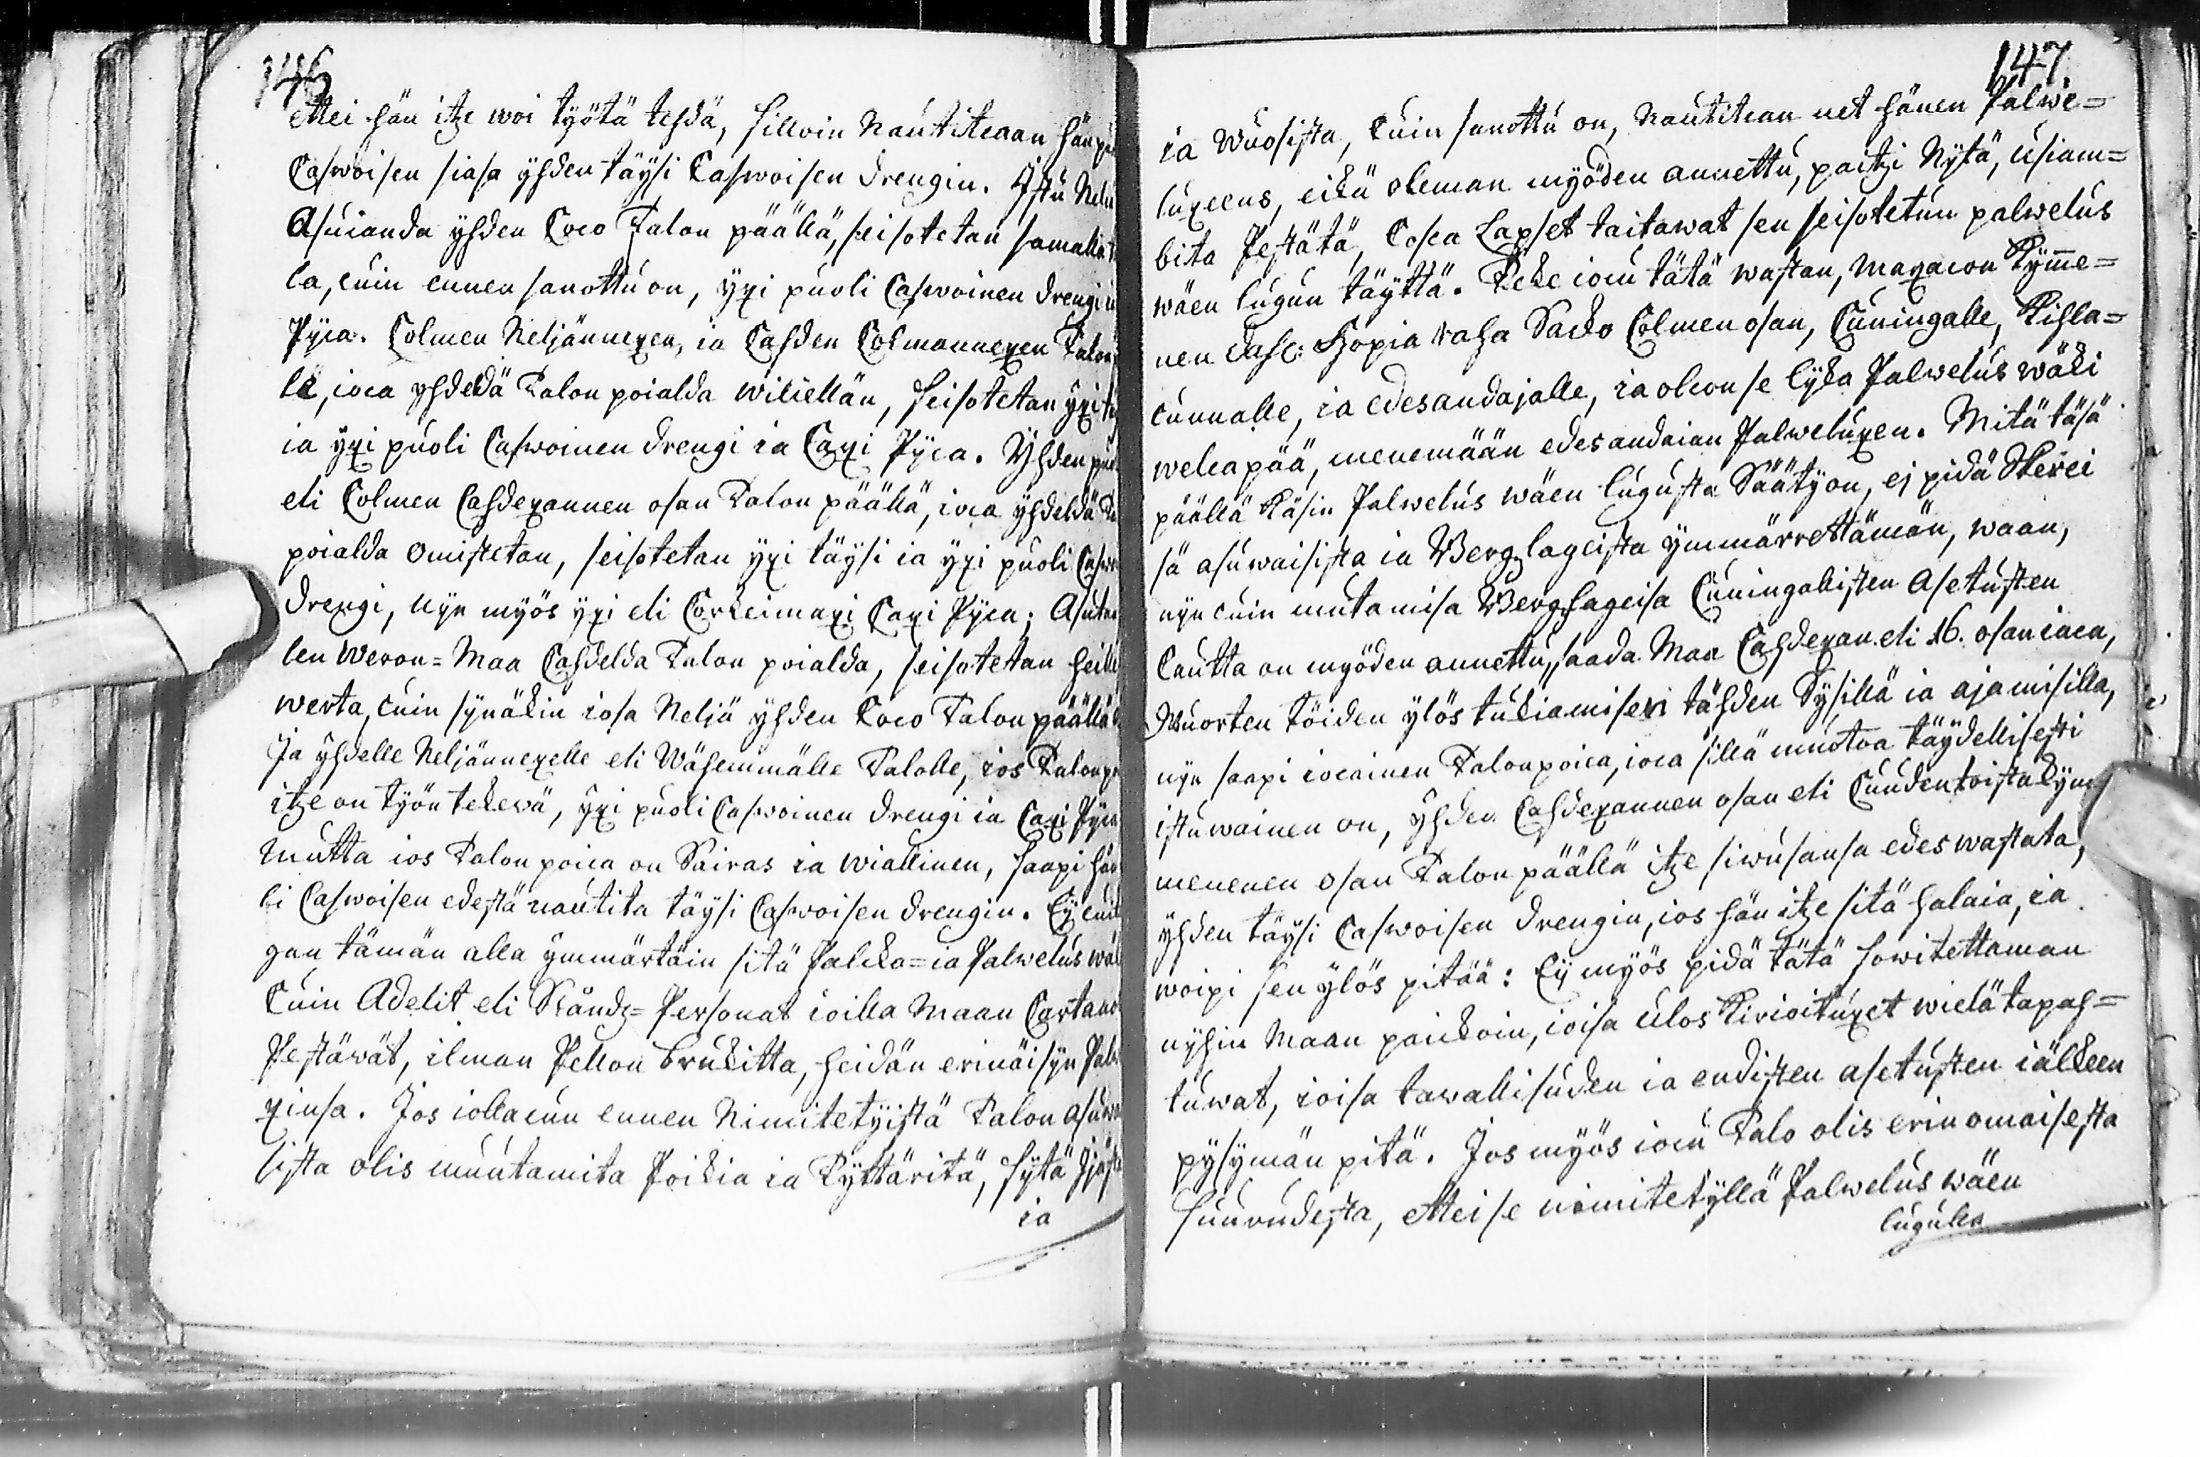 146
ettei hän itze woi työtä tehdä, silloin Nautitcaan hän
Caswoisen siasa yhden täysi Caswoisen drengin. Istu
Asuianda yhden Coco Talon päällä, seisotetan samalla
la, cuin ennen sanottu on, yxi puoli Caswoinen drengi
Pijca. Colmen Neljännexen, ia Cahden Colmannexen
lä, ioca yhdeldä Talon poialda wiliellän, seisotetan yxi
ia yxi puoli Caswoinen drengi ia Caxi Pijca. Yhden
eli Colmen Cahdexannen osan Talon päällä, ioca yhdeldä
poialda omistetan, seisotetan yxi täysi ia yxi puoli
drengi, nijn myös yxi eli Corkeimaxi Caxi Pijca;
len Weron=Maa Cahdelda Talon poialda, seisotetan
werta, cuin synäkin iosa Neljä yhden Coco Talon päällä
Ja yhdelle Neljännexelle eli Wähemmälle Talolle, ios
itze on työn tekewä, yxi puoli Caswoinen drengi ia Caxi
Mutta ios Talon poica on Sairas ia wiallinen, saapi
li Caswoisen edestä nautita täysi Caswoisen drengin. Ej
gan tämän alla ymmärtäin sitä Palcka=ia Palwelus
Cuin Adelit eli Stånds=Personat ioilla Maan
Pestäwät, ilman Pellon brukitta, heidän erinäisyn
xinsa. Jos iollacun ennen Nimitetyistä Talon
sista olis muutamita Poikia ia Tyttäritä, sijtä
ia
147.
ia Wuosista, Cuin sanottu on, Nautitcan net hänen Palwe=
luxeens, eikä oleman myöden annettu, paitzi Nijtä, usiam=
bita Pestätä, Cosca Lapset taitawat sen seisotetun palwelus
wäen lugun täyttä. Teke iocu tätä wastan, Maxacon Kymme=
nen dahl: Hopia raha Sacko Colmen osan, Cuningalle, Kihla=
cunnalle, ia edesandajalle, ia olcon se lijka Palwelus wäki
welcapää, menemään edesandaian Palweluxen. Mitä täsä
päällä Käsin Palwelus wäen lugusta Säätyon, ej pidä Skerei
sä asuwaisista ia Berg lageista ymmärrettämän, waan,
nijn cuin mutamisa Berghlageisa Cuningalisten Asetusten
Cautta on myöden annettu, saada Maa Cahdexan eli 16. osan iaca,
Wuorten töiden ylös tukiamisen tähden Sysillä ia ajamisilla,
nijn saapi iocainen Talonpoica, ioca sillä muotoa täydellisesti
istuwainen on, yhden Cahdexannen osan eli Cuudentoistakym
menenen osan Talon päällä itze siwusansa edeswastata,
yhden täysi Caswoisen drengin, ios hän itze sitä halaia, ia
woipi sen ylös pitää: Eij myös pidä tätä sowitettaman
nijhin Maan paickoin, ioisa ulos Kirioituxet wielä tapah=
tuwat, ioisa tawallisuden ia endisten asetusten iälkeen
pysymän pitä. Jos myös iocu Talo olis erinomaisesta
suurudesta, ettei se nimitetyllä Palwelus wäen
lugulla